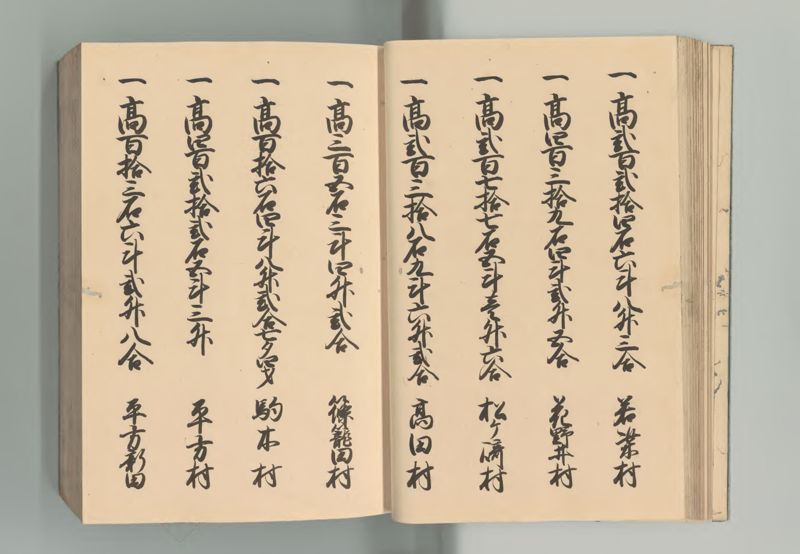 一高弐百弐拾四石六斗八升三合 若柴村
一高四百三拾九石四斗弐升五合 花野井村
一高弐百七拾七石五斗壱升六合 松ヶ崎村
一高弐百三拾八石九斗六升弐合 高田村
一高三百五石三斗四升弐合 篠籠田村
一高百拾六石四斗八升弐合七夕四才 駒木村
一高四百弐拾弐石五斗三升 平方村
一高百拾三石六斗弐升八合 平方新田